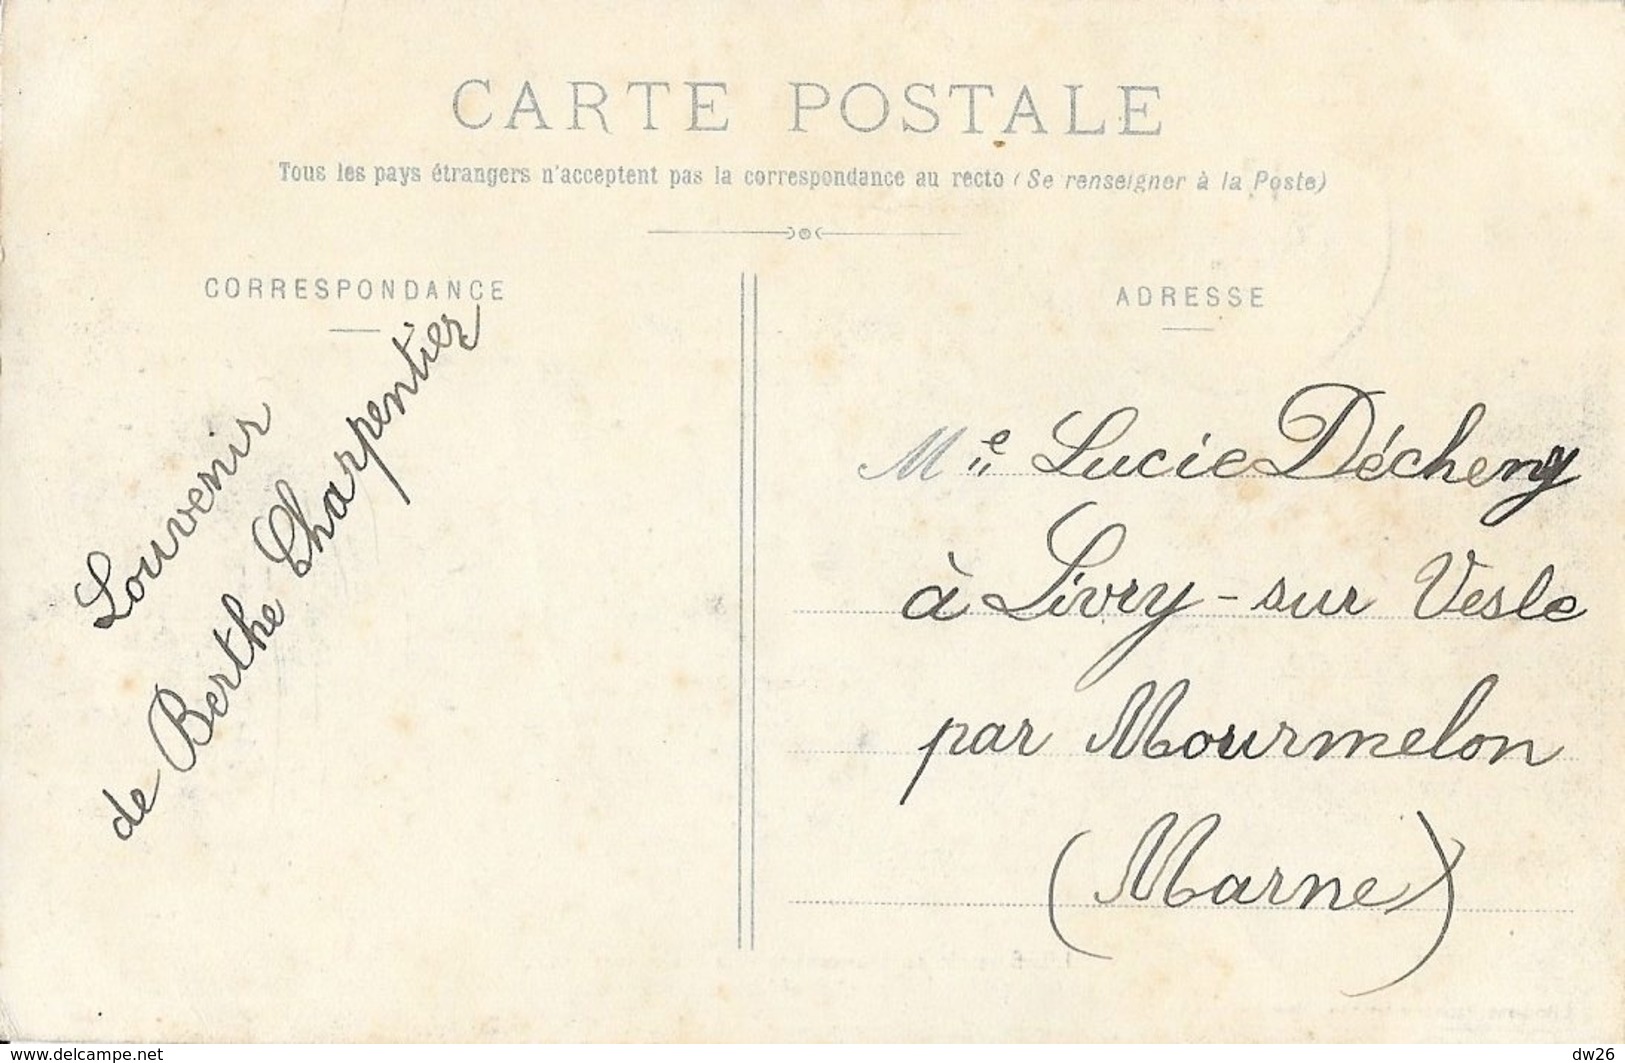 CARTE POSTALE
Tous les pays étrangers n'acceptent pas la correspondance au recto (Se renseigner à la Poste)
CORRESPONDANCE
Souvenir
de Berthe Charpentier
ADRESSE
Melle Lucie Décheny
à Livry-sur Vesle
par Mourmelon
(Marne)
www.delcampe.net
dw26